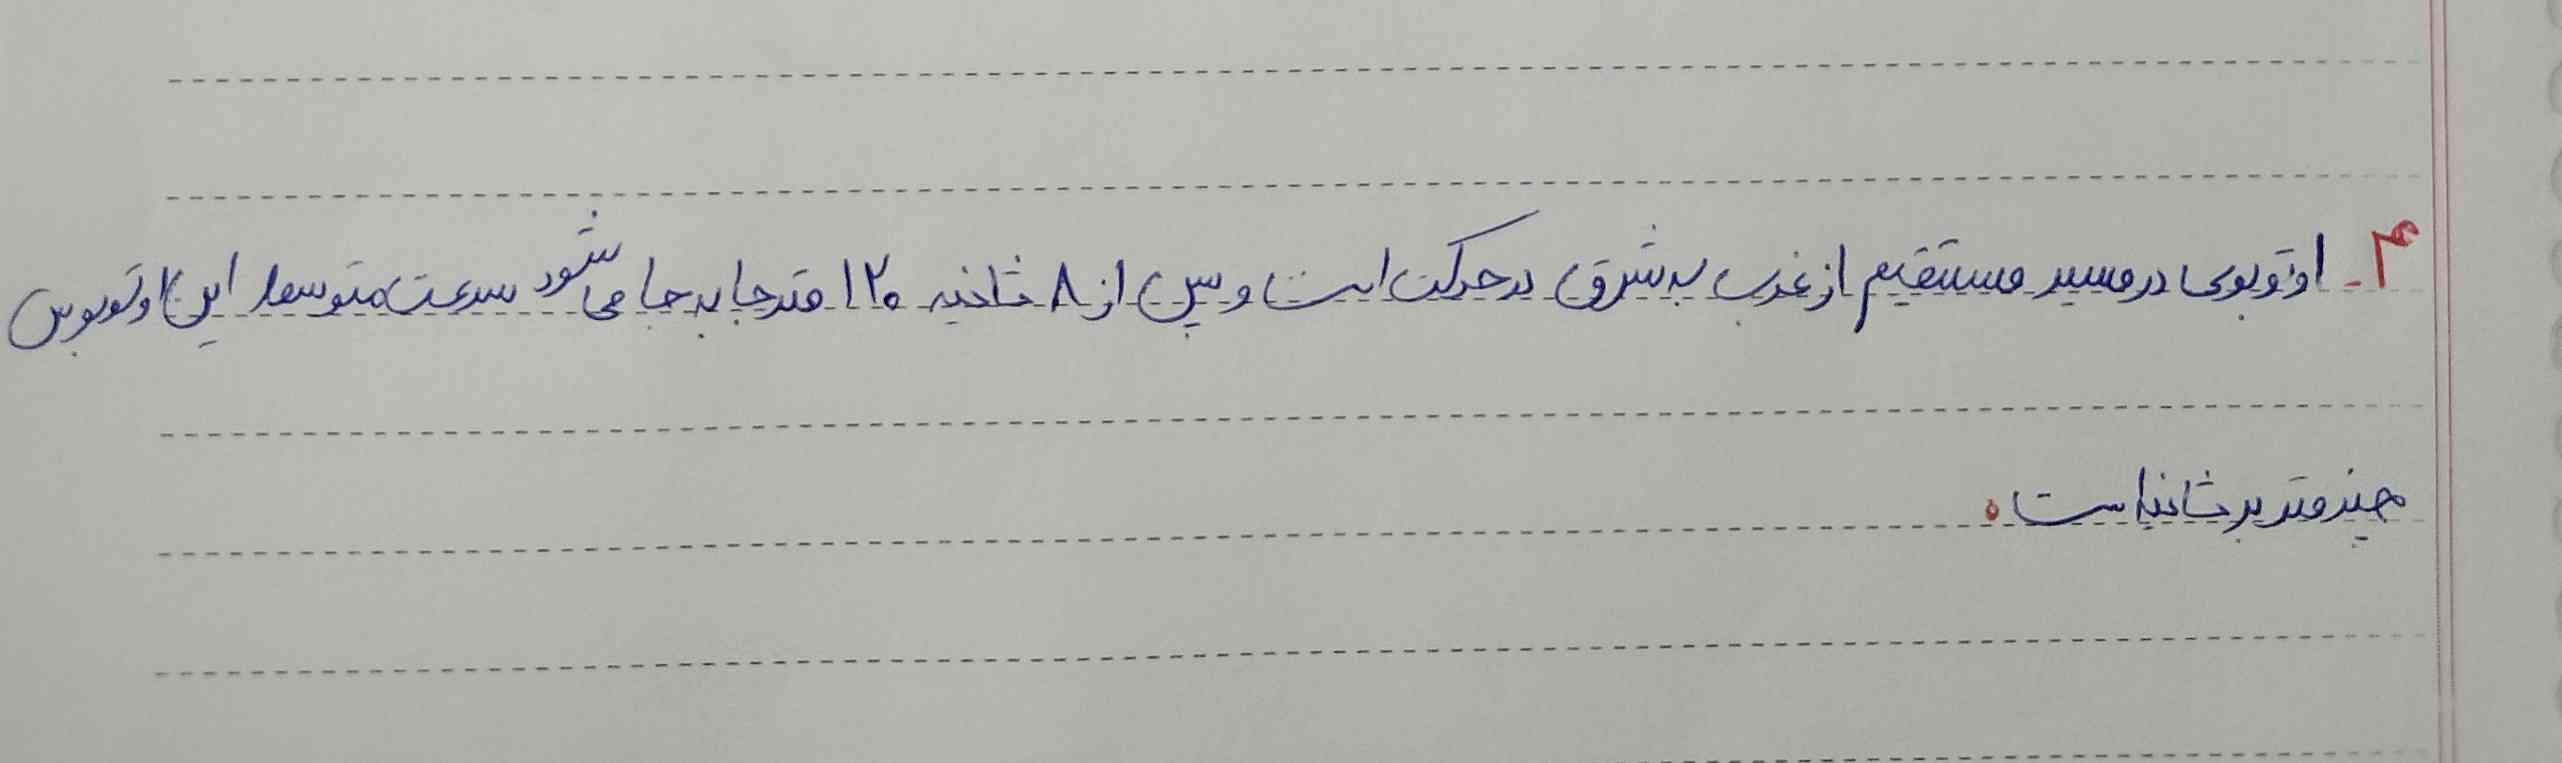 ۳- اوتوبوسی در مسیر مستقیم از غرب به شرق در حرکت است و پس از ۸ ثانیه ۱۲۰ متر جا به جا می شود سرعت متوسط این اوتوبوس
چند متر بر ثانیه است.